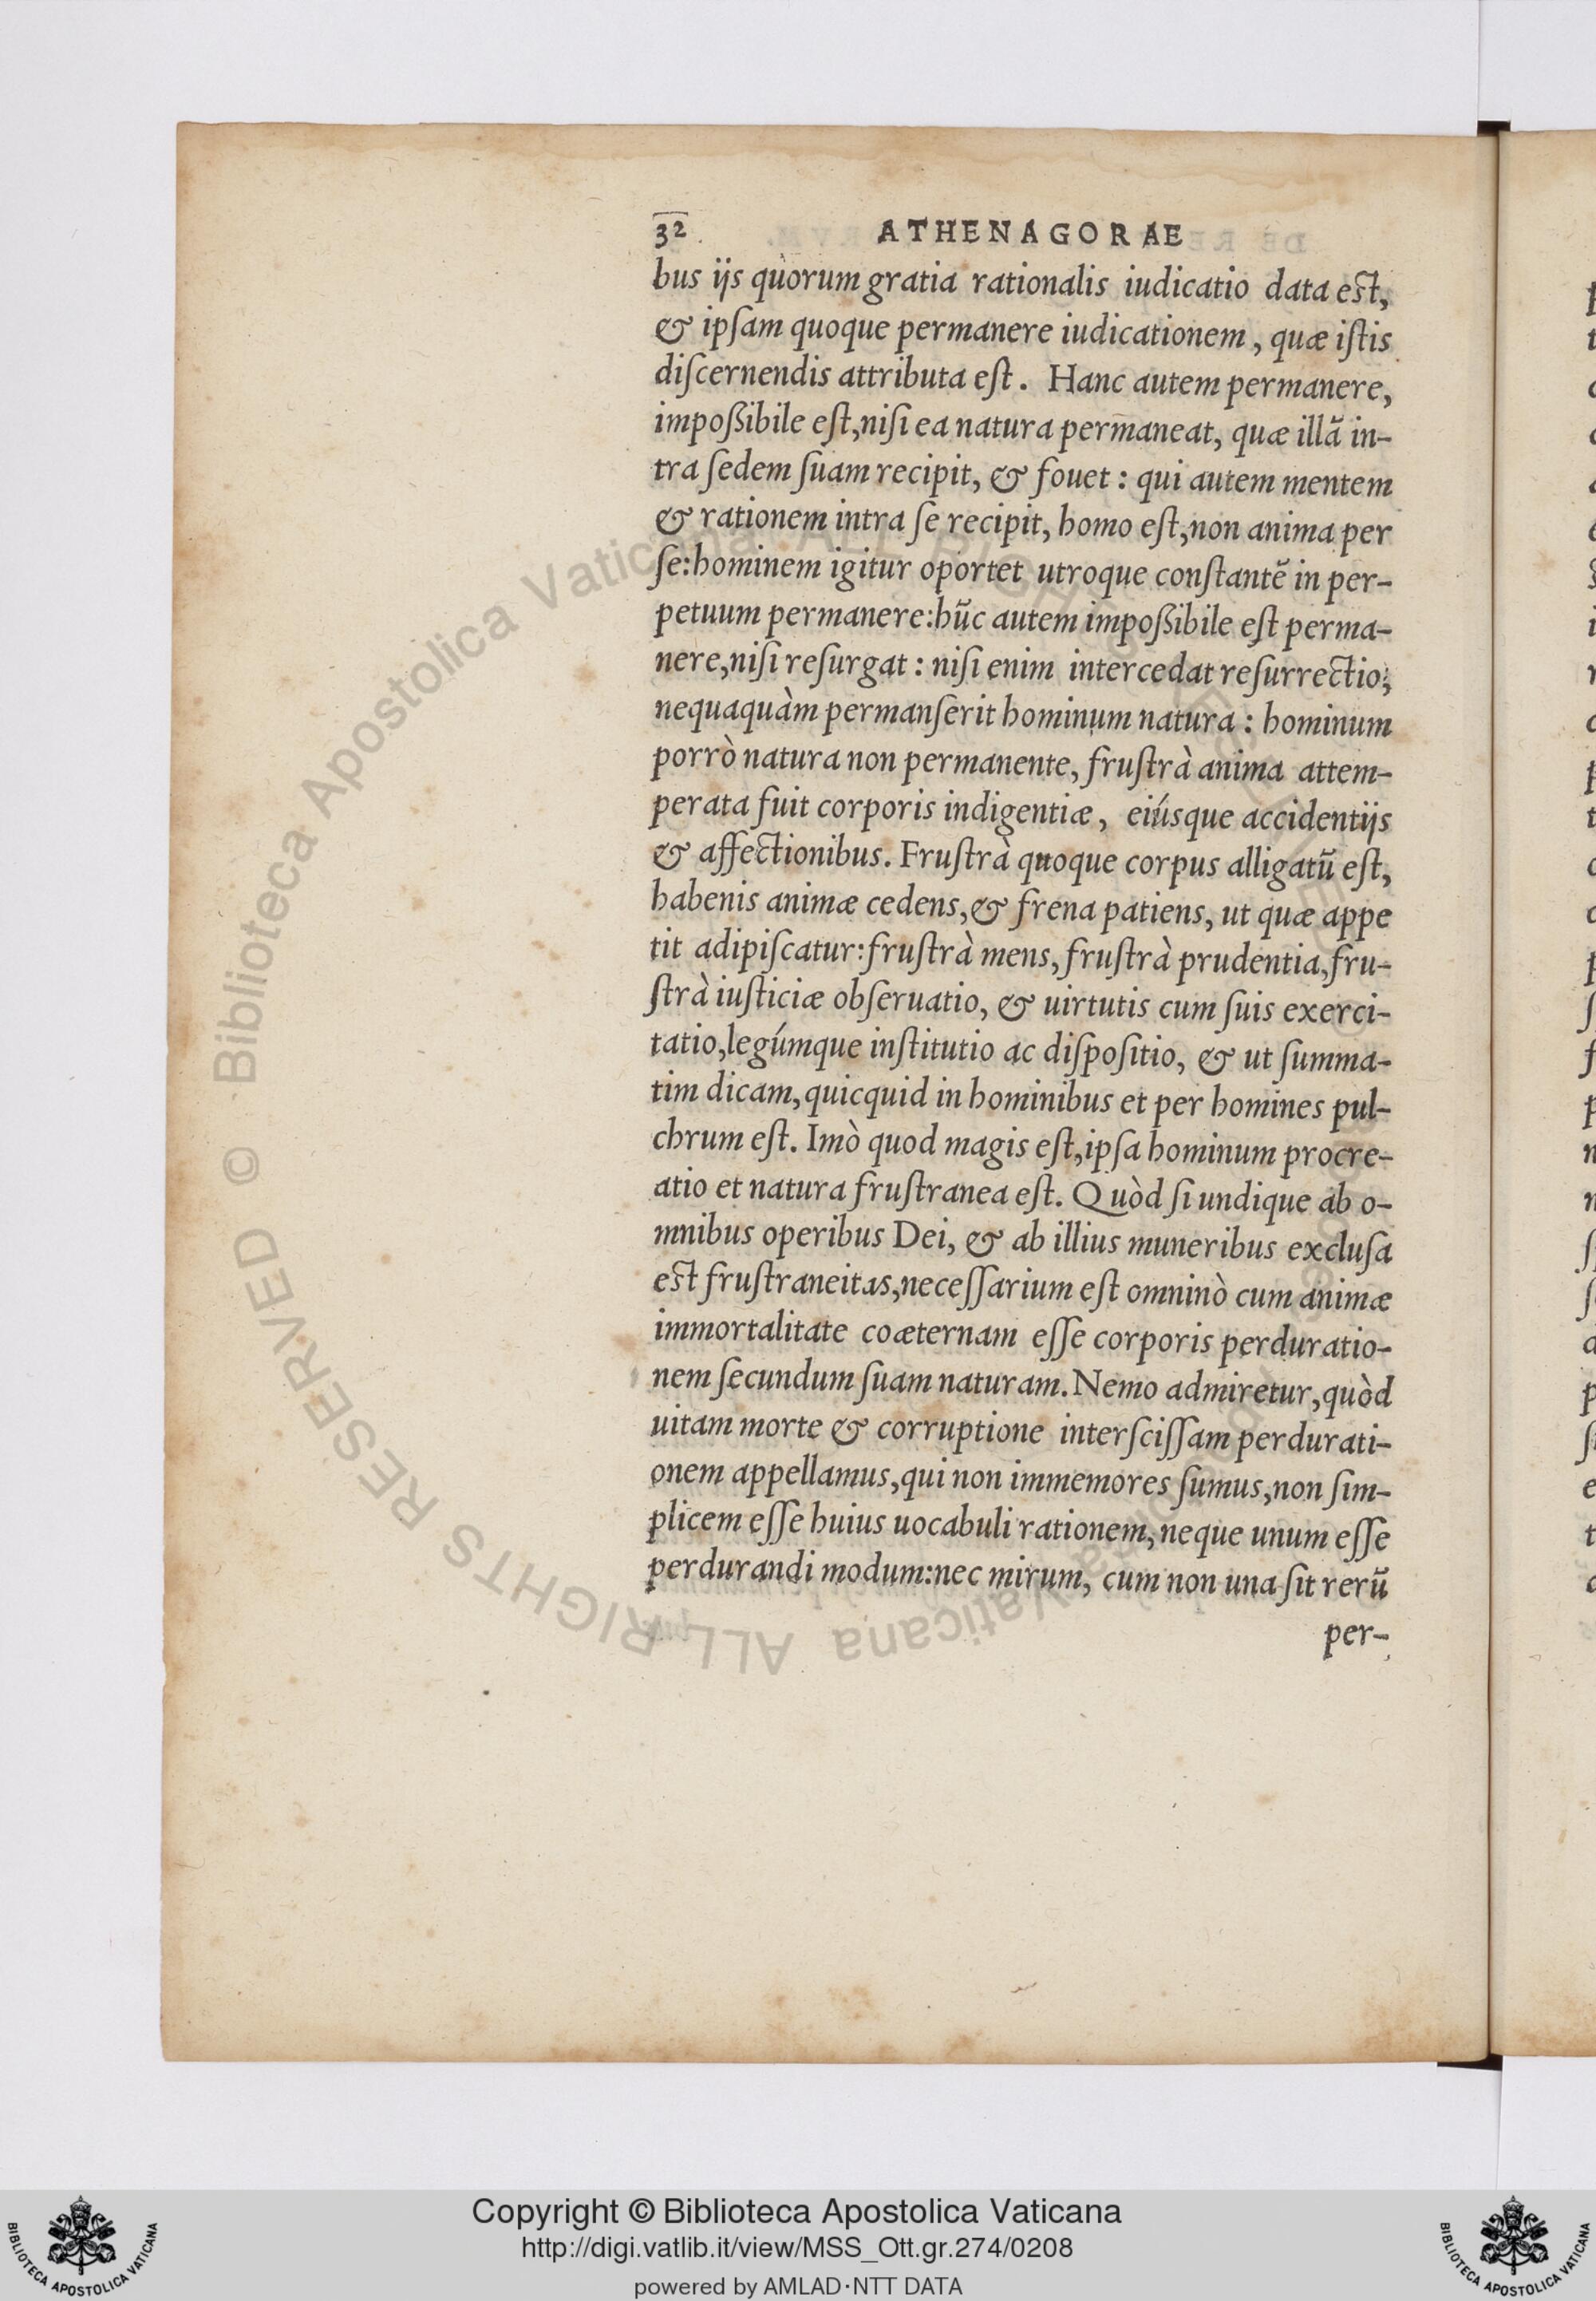 32 ATHENAGORAE
bus ijs quorum gratia rationalis iudicatio data est,
& ipſam quoque permanere iudicationem, quæ iſtis
diſcernendis attributa eſt. Hanc autem permanere,
impoßibile eſt, niſi ea natura permaneat, quæ illã in-
tra ſedem ſuam recipit, & fouet: qui autem mentem
& rationem intra ſe recipit, homo eſt, non anima per
ſe: hominem igitur oportet utroque conſtantẽ in per-
petuum permanere: hũc autem impoßibile eſt perma-
nere, niſi reſurgat: niſi enim intercedat reſurrectio,
nequaquàm permanſerit hominum natura: hominum
porrò natura non permanente, fruſtrà anima attem-
perata fuit corporis indigentiæ, eiúsque accidentijs
& affectionibus. Fruſtrà quoque corpus alligatũ eſt,
habenis animæ cedens, & frena patiens, ut quæ appe
tit adipiſcatur: fruſtrà mens, fruſtrà prudentia, fru-
ſtrà iuſticiæ obſeruatio, & uirtutis cum ſuis exerci-
tatio, legúmque inſtitutio ac diſpoſitio, & ut ſumma-
tim dicam, quicquid in hominibus et per homines pul-
chrum eſt. Imò quod magis eſt, ipſa hominum procre-
atio et natura fruſtranea eſt. Quòd ſi undique ab o-
mnibus operibus Dei, & ab illius muneribus excluſa
est fruſtraneitas, neceſſarium eſt omninò cum animæ
immortalitate coæternam eſſe corporis perduratio-
nem ſecundum ſuam naturam. Nemo admiretur, quòd
uitam morte & corruptione interſciſſam perdurati-
onem appellamus, qui non immemores ſumus, non ſim-
plicem eſſe huius uocabuli rationem, neque unum eſſe
perdurandi modum: nec mirum, cum non una ſit rerũ
per-
© Biblioteca Apostolica Vaticana ALL RIGHTS RESERVED
Copyright © Biblioteca Apostolica Vaticana
http://digi.vatlib.it/view/MSS_Ott.gr.274/0208
powered by AMLAD·NTT DATA
BIBLIOTECA APOSTOLICA VATICANA
BIBLIOTECA APOSTOLICA VATICANA